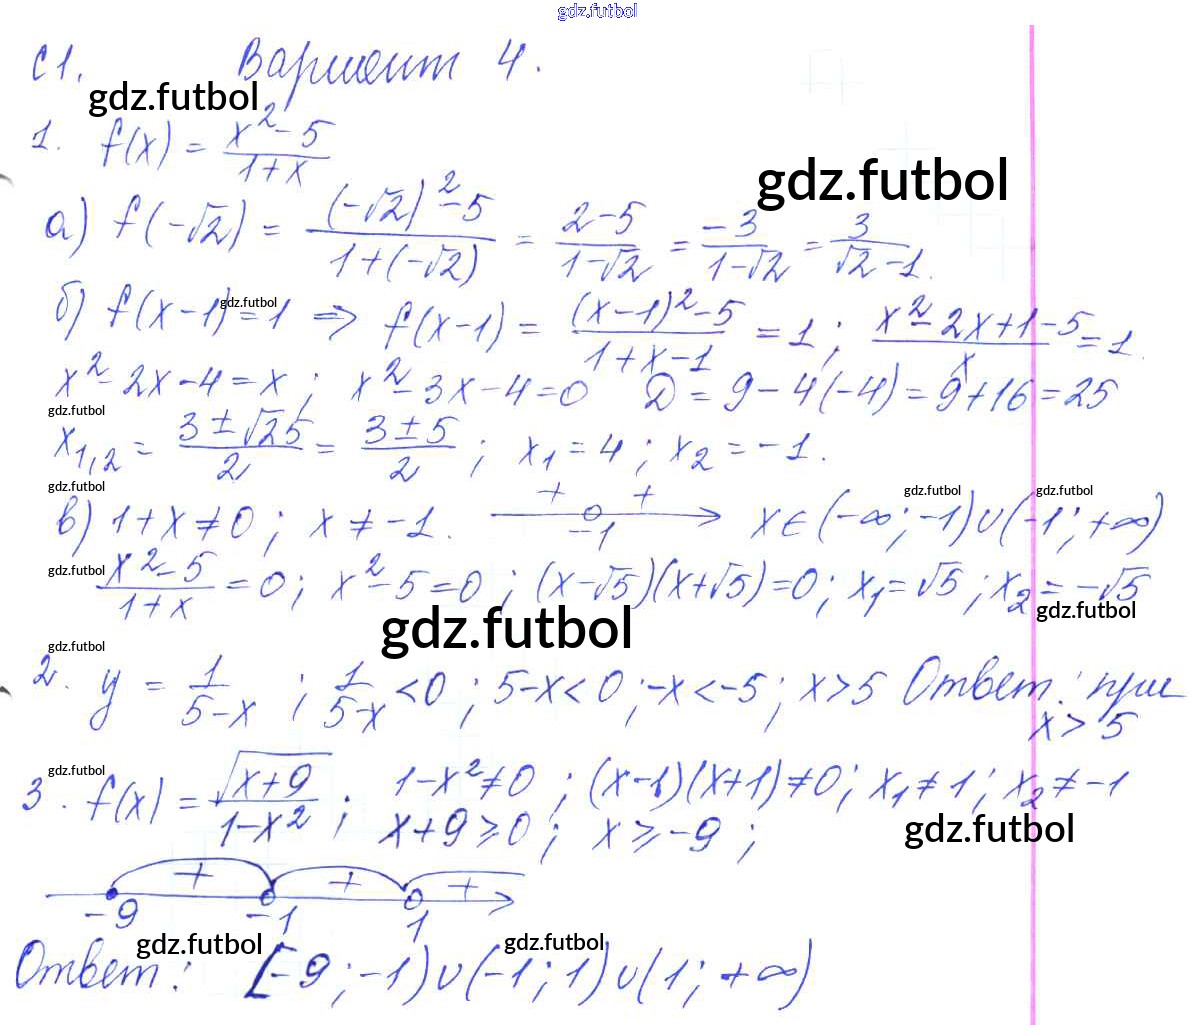 gdz.futbol
С1. Вариант 4.
gdz.futbol
1. f(x) = (x² - 5)/(1 + x)
gdz.futbol
а) f(-√2) = ((-√2)² - 5)/(1 + (-√2)) = (2 - 5)/(1 - √2) = (-3)/(1 - √2) = 3/(√2 - 1).
gdz.futbol
б) f(x - 1) = 1 => f(x - 1) = ((x - 1)² - 5)/(1 + x - 1) = 1; (x² - 2x + 1 - 5)/x = 1.
x² - 2x - 4 = x; x² - 3x - 4 = 0 D = 9 - 4(-4) = 9 + 16 = 25
gdz.futbol
x₁,₂ = (3 ± √25)/2 = (3 ± 5)/2; x₁ = 4; x₂ = -1.
gdz.futbol
gdz.futbol gdz.futbol
+ +
в) 1 + x ≠ 0; x ≠ -1. -1 x ∈ (-∞; -1) ∪ (-1; +∞)
gdz.futbol
(x² - 5)/(1 + x) = 0; x² - 5 = 0; (x - √5)(x + √5) = 0; x₁ = √5; x₂ = -√5
gdz.futbol gdz.futbol
gdz.futbol
2. y = 1/(5 - x); 1/(5 - x) < 0; 5 - x < 0; -x < -5; x > 5 Ответ: при
x > 5
gdz.futbol
3. f(x) = √(x + 9)/(1 - x²); 1 - x² ≠ 0; (x - 1)(x + 1) ≠ 0; x₁ ≠ 1; x₂ ≠ -1
x + 9 ≥ 0; x ≥ -9;
gdz.futbol
+ + +
-9 -1 1
gdz.futbol gdz.futbol
Ответ: [-9; -1) ∪ (-1; 1) ∪ (1; +∞)